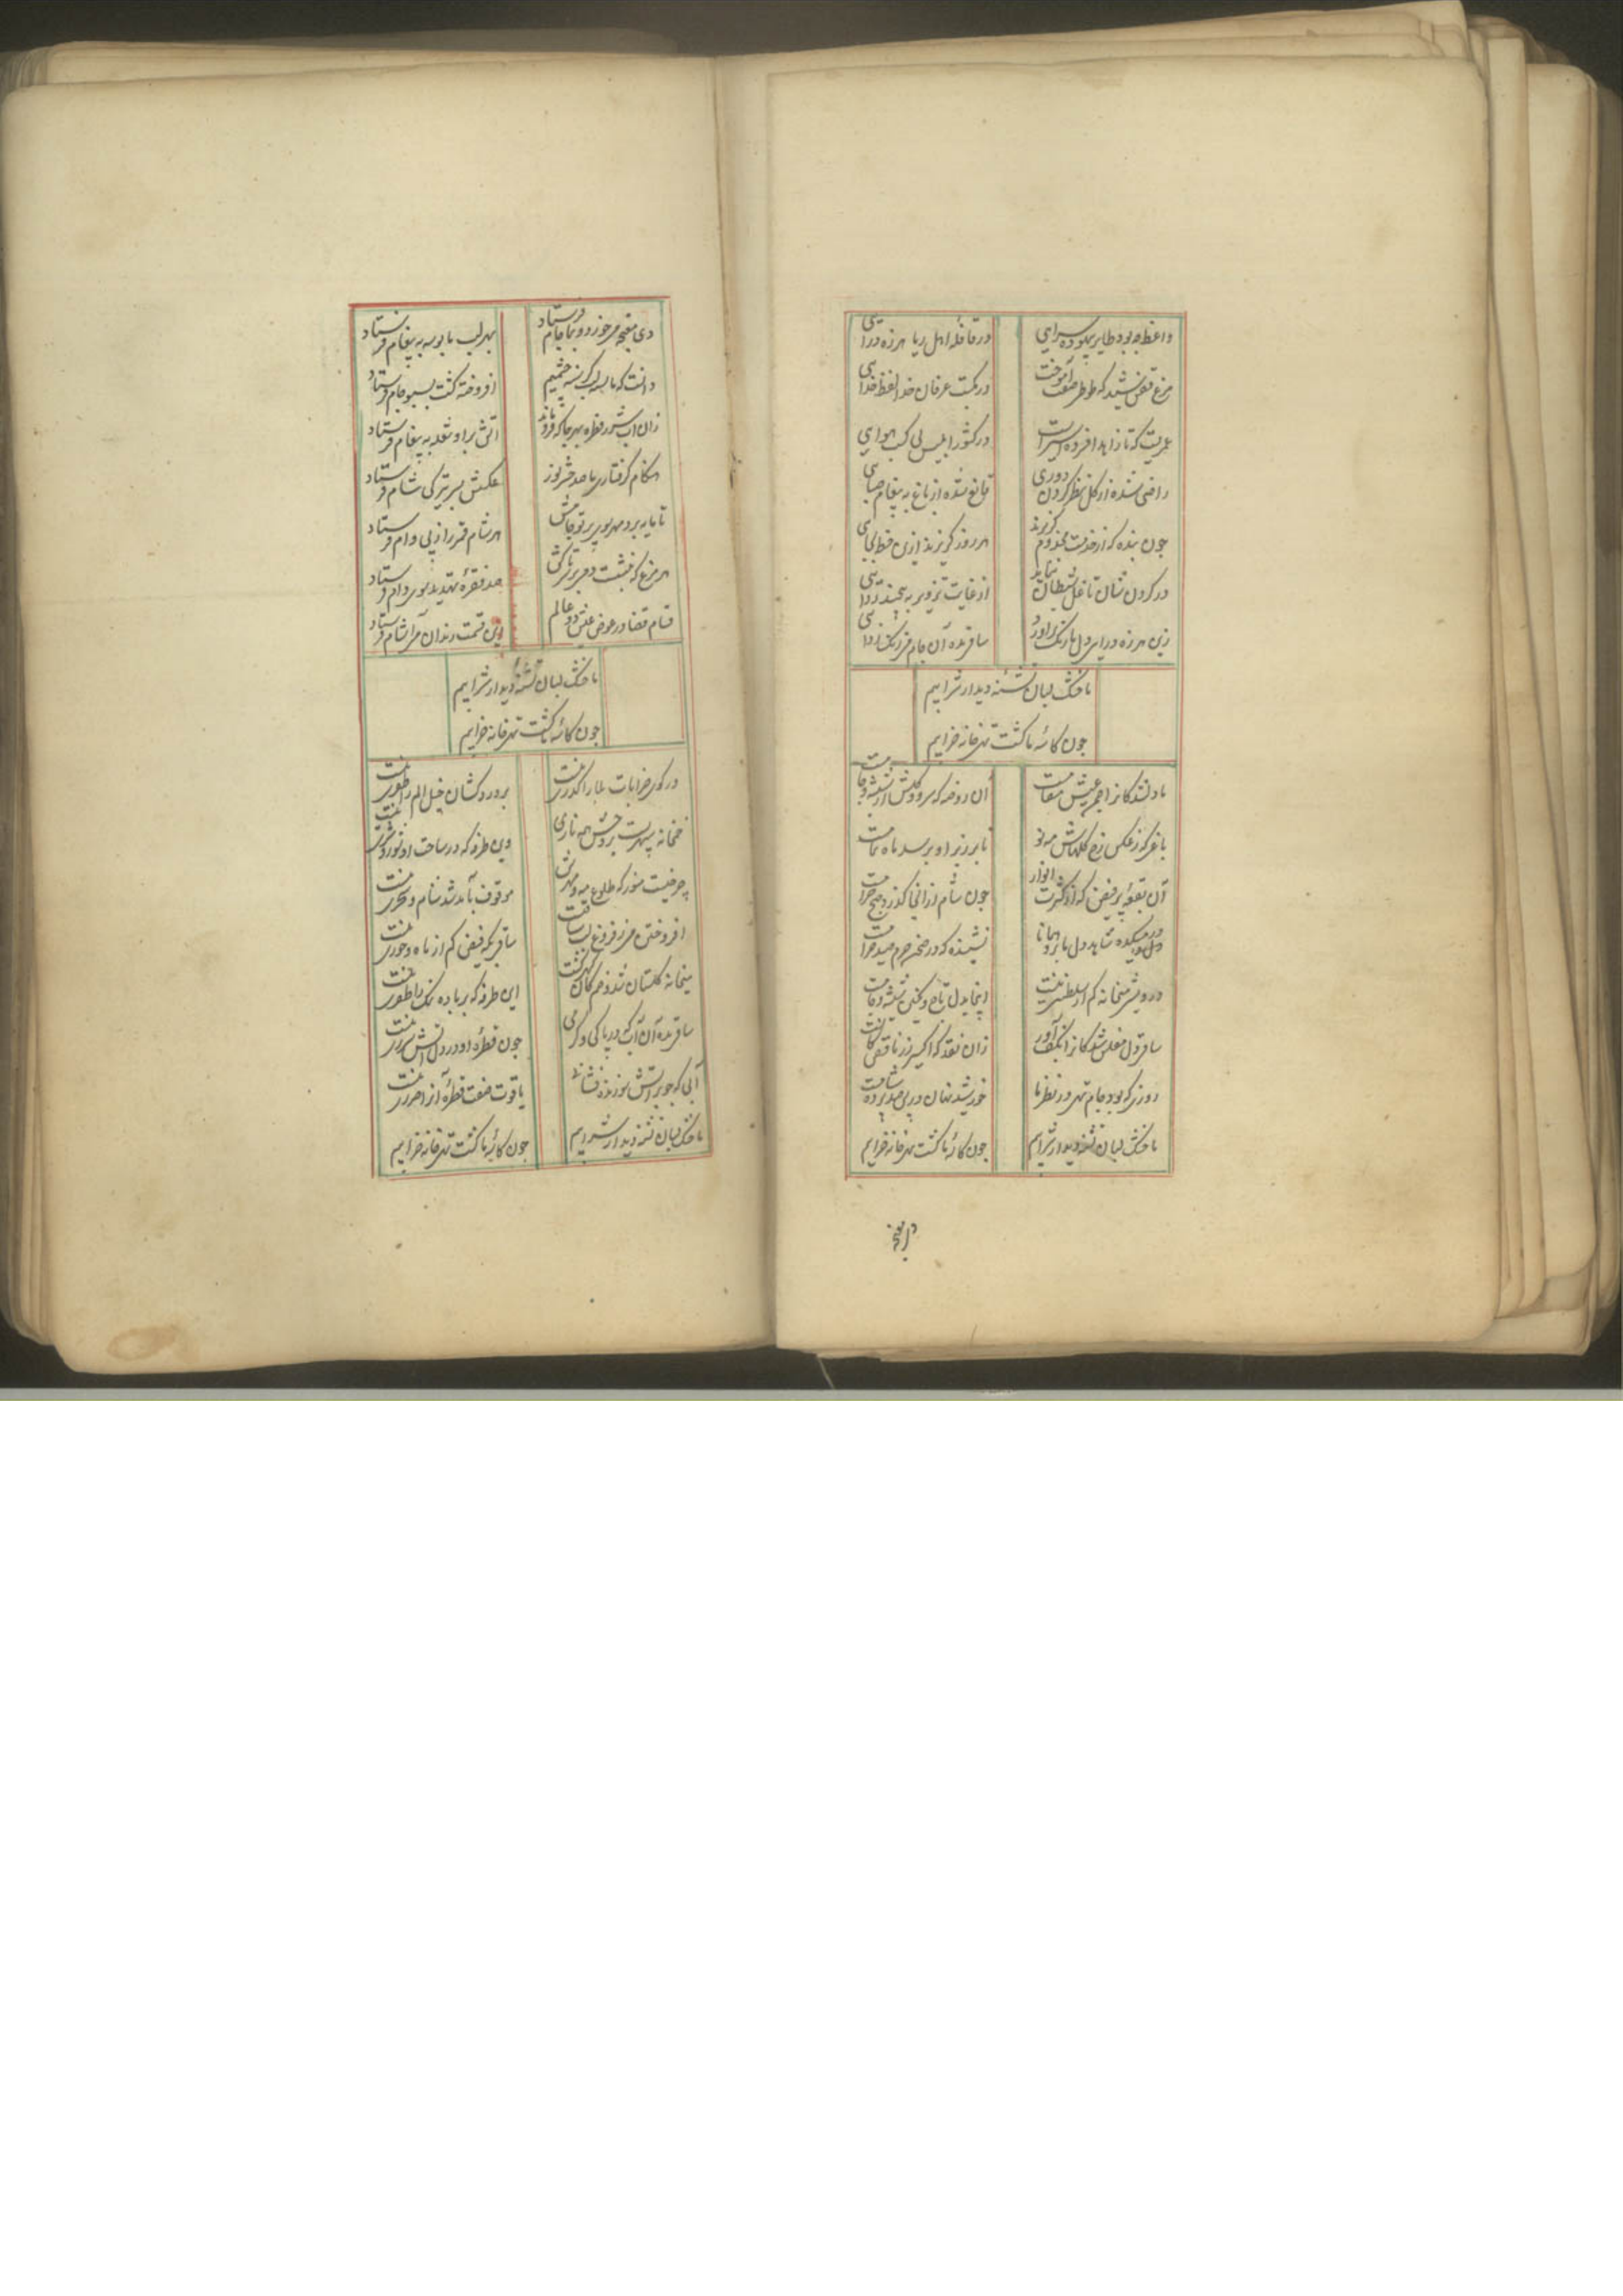 واعظ چه بود طایر بیهوده سرایی
در قافله اهل ریا هرزه درایی
مرغ قفس نشنید که طوطی صفت آموخت
در مکتب عرفان خدا لفظ خدایی
عمریست که تا زاهد افسرده اسیر است
در کشور ابلیس پی کسب هوایی
راضی شده از گل نظر کردن دوری
قانع شده از باغ به پیغام صبایی
چون بنده که از خدمت مخدوم گریزد
هر روز گریزند ازین خطه بجایی
در گردن شان تا غل شیطان نماید
از غایت تزویر به
زین هرزه درایی دل ما زنگ برآورد
ساقی بده آن جام می زنگ زدایی
ما خشک لبان تشنه دیدار شرابیم
چون کاسه ما گشت تهی خانه خرابیم
ما دلشدگان را چه عیش مقامست
آن روضه که سرو و گلش از شیشه و جامست
باغی که ز عکس رخ گلهاش مه نو
تا بر زبر او برسد ماه تمامست
آن بقعه پر فیض که از کثرت انوار
چون شام از آنجا گذرد صبح حرامست
در میکده شاهد دل ما برد همانا
نشنیده که در صحن حرم صید حرامست
درویشی میخانه کم از سلطنتی نیست
اینجا بدل تاج و نگین شیشه و جامست
ساقی دل مفلس شدگان را بکف آور
زان نقد که اکسیر زر ناقص کانست
روزی که بود جام تهی در نظر ما
خورشید نهان در پس صد پرده شامست
ما خشک لبان تشنه دیدار شرابیم
چون کاسه ما گشت تهی خانه خرابیم
دی مغبچه می خورد و بما جام فرستاد
بهر لب ما بوسه به پیغام فرستاد
دانست که ما گرسنه چشمیم
افروخته گشت بسبو جام فرستاد
زان آب شرر قطره بهر جا که فرو ماند
آتش بر او نقد به پیغام فرستاد
هنگام گرفتاری ما صد شرر نور
عکسش بسر تیرگی شام فرستاد
تا مایه برد مهر بوی پرتو جامش
هر شام قمر را ز پی وام فرستاد
هر مرغ که ننشست دمی بر سر تاکش
صد فقره تهدید بوی دام فرستاد
قسام قضا در عوض عیش دو عالم
این قسمت رندان می آشام فرستاد
ما خشک لبان تشنه دیدار شرابیم
چون کاسه ما گشت تهی خانه خرابیم
در کوی خرابات بلا را گذری نیست
بر دردکشان خیل الم را ظفری نیست
خمخانه سپهریست بروجش همه ناری
وین طرفه که در ساحت او ثور و بری نیست
چرخیست منور که طلوع مه و مهرش
موقوف بآمد شد شام و سحری نیست
افروختن می ز فروغ لب ساقیست
ساقی که فیض کم از ماه و خوری نیست
میخانه گلستان شد و خم کان گهر گشت
این طرفه که بر باده تنک را ظفری نیست
ساقی بده آن آب که در پاکی و گرمی
چون قطره او در دل آتش شرری نیست
آبی که چو بر آتش سوزنده فشانند
یاقوت صفت قطره آن را ضرری نیست
ما خشک لبان تشنه دیدار شرابیم
چون کاسه ما گشت تهی خانه خرابیم